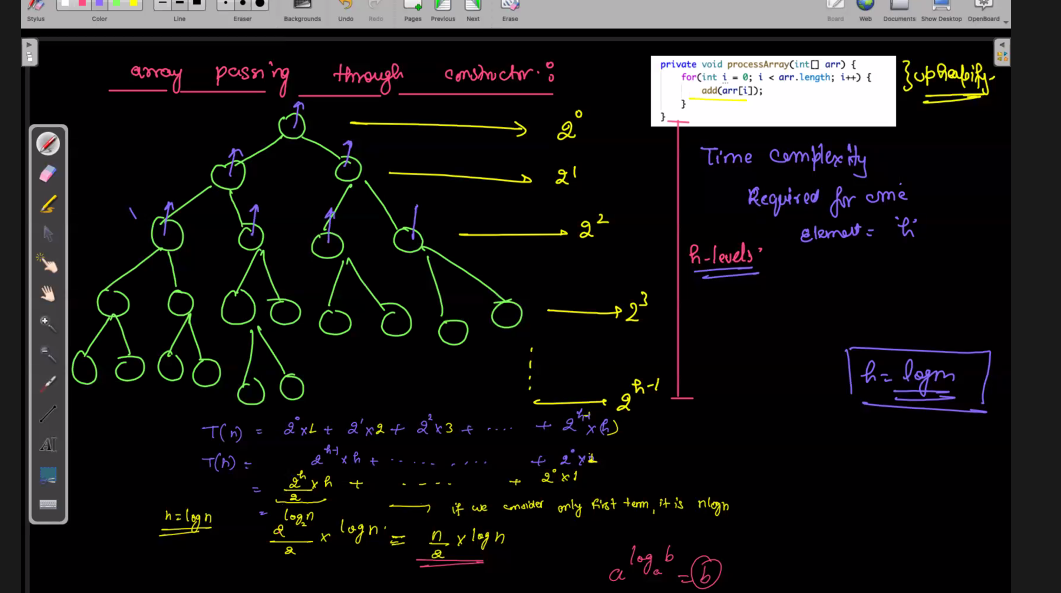 Stylus Color Line Eraser Backgrounds Undo Redo Pages Previous Next Erase Board Web Documents Show Desktop OpenBoard
array passing through constructor:
private void processArray(int[] arr) {
for(int i = 0; i < arr.length; i++) {
add(arr[i]);
}
}
} upheapify
2^0
2^1
2^2
2^3
2^h-1
Time complexity
Required for one
element = 'h'
h-levels
h = logn
T(n) = 2^0x1 + 2^1x2 + 2^2x3 + .... + 2^h-1x(h)
T(n) = 2^h-1xh + ........ + 2^0x1
= 2^h/2 xh + .... + 2^0x1
if we consider only first term, it is nlogn
h=logn
= 2^log2n/2 x logn = n/2 x logn
a^logab = b